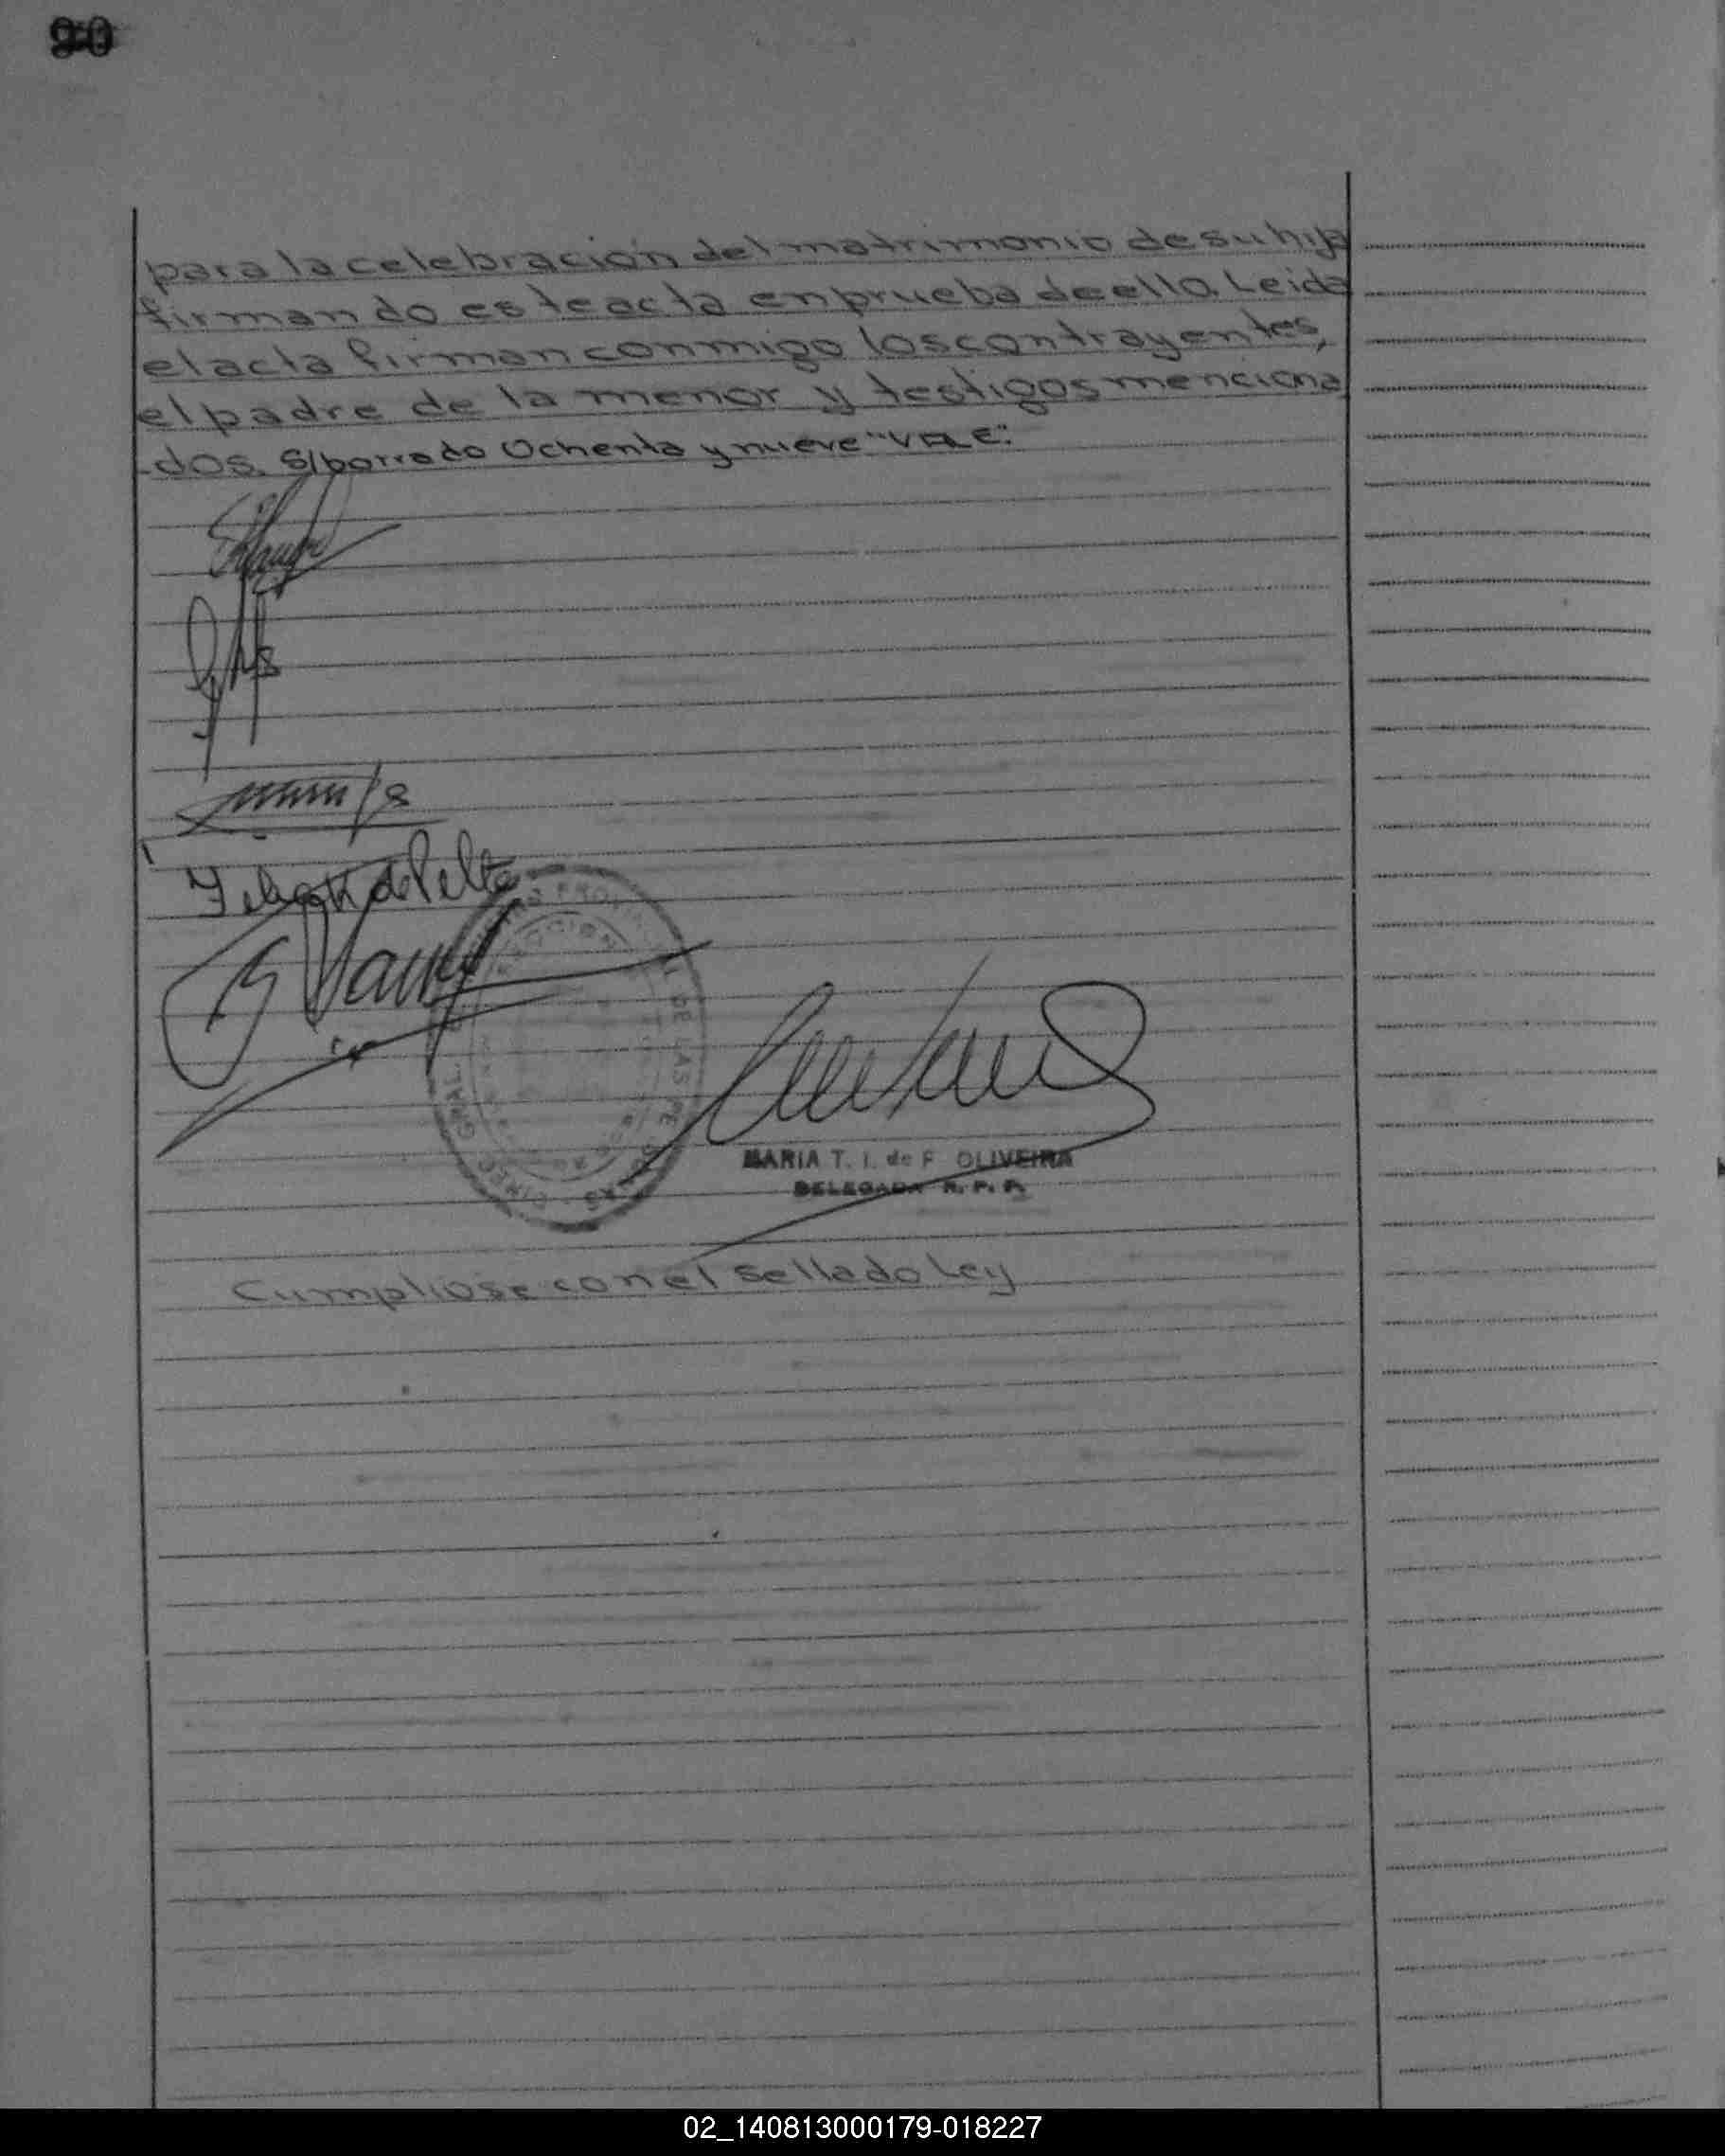 90
para la celebración del matrimonio de su hija
firmando este acta en prueba de ello. Leida
el acta firman conmigo los contrayentes,
el padre de la menor y testigos menciona
dos. S/borrado Ochenta y nueve "VALE".
MARIA T. I. de F. OLIVEIRA
DELEGADA R. P. P.
Cumpliose con el sellado Ley
02_140813000179-018227